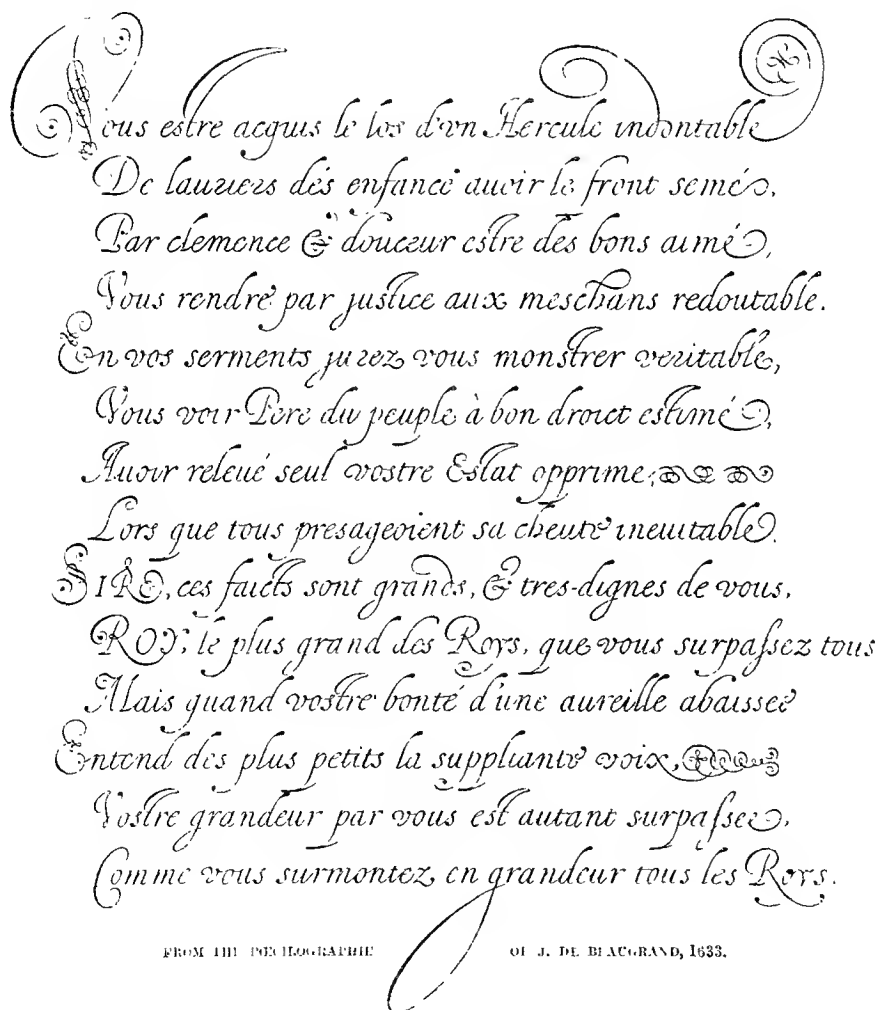 Vous estre acquis le los d'vn Hercule indontable
De lauriers dés enfance auoir le front semé,
Par clemence & douceur estre des bons aimé,
Vous rendre par justice aux meschans redoutable.
En vos serments jurez vous monstrer veritable,
Vous voir Pere du peuple à bon droict estimé,
Auoir releué seul vostre Estat opprime,
Lors que tous presageoient sa cheute ineuitable.
SIRE, ces faicts sont grands, & tres-dignes de vous,
ROY, le plus grand des Roys, que vous surpassez tous
Mais quand vostre bonté d'une aureille abaissee
Entend des plus petits la suppliante voix,
Vostre grandeur par vous est autant surpassee,
Comme vous surmontez en grandeur tous les Roys.
FROM THE PŒCILOGRAPHIE OF J. DE BEAUGRAND, 1633.